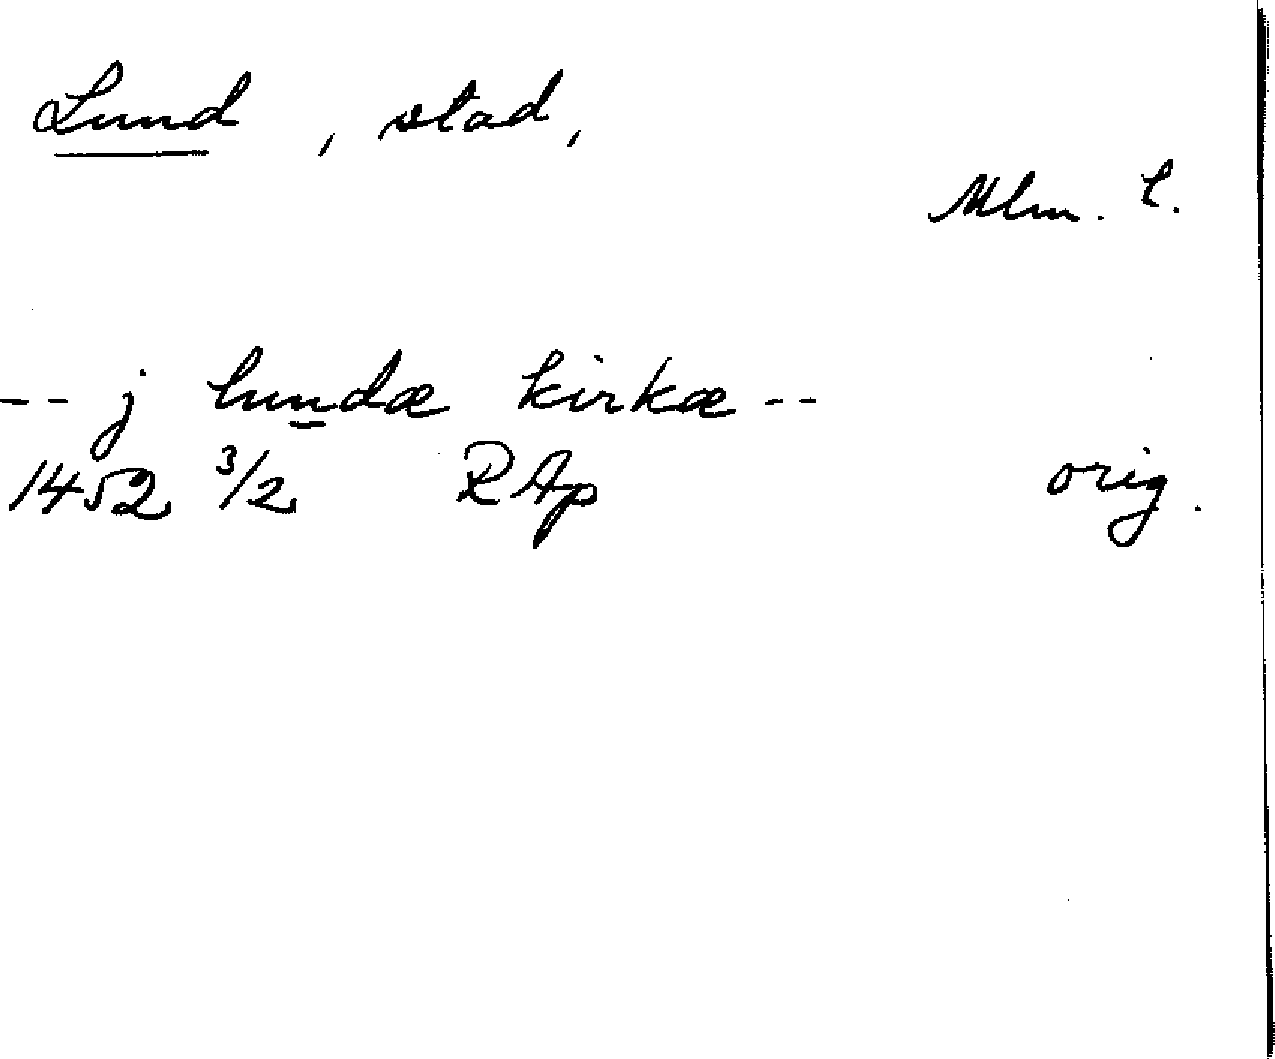 Lund, stad,
Mlm. l.
-- j lundæ kirkæ --
1452 3/2 RAp orig.